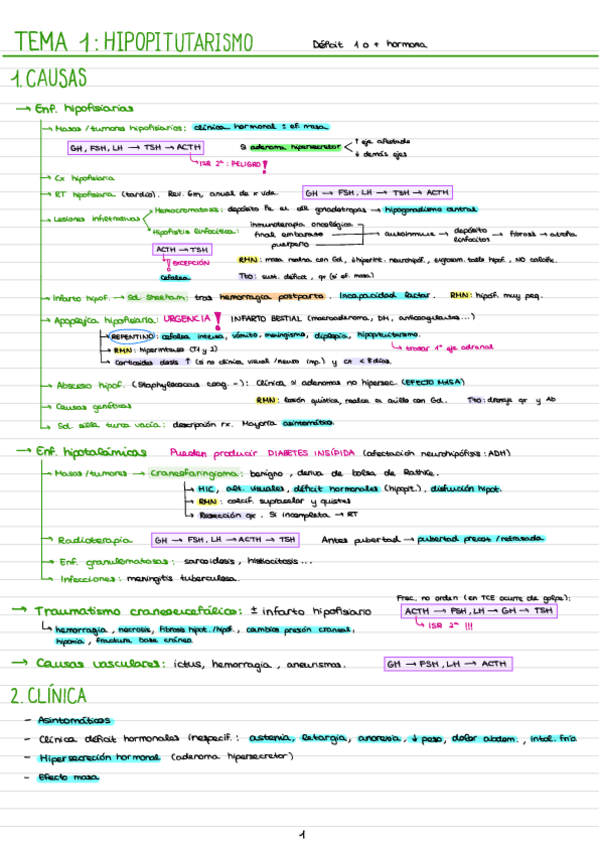 TEMA 1: HIPOPITUTARISMO Déficit 1 o + hormona
1. CAUSAS
→ Enf. hipofisarias
→ Masas / tumores hipofisarios: clínica hormonal ± ef. masa
GH, FSH, LH → TSH → ACTH Si adenoma hipersecretor < ↑ eje afectado
↓ demás ejes
↳ ISR 2ª: PELIGRO!
→ Cx hipofisaria
→ RT hipofisaria (tardío). Rev. 6m, anual de x vida. GH → FSH, LH → TSH → ACTH
→ Lesiones infiltrativas
Hemocromatosis: depósito Fe en cél. gonadotropas → hipogonadismo central
Hipofisitis linfocitica: inmunoterapia oncológica
final embarazo → autoinmune → depósito linfocitos → fibrosis → atrofia
puerperio
ACTH → TSH
! EXCEPCIÓN
Cefalea
RMN: masa realza con Gd, hiperint. neurohipof., engrosam. tallo hipof., NO calcific.
Tto: sust. déficit, qx (si ef. masa)
→ Infarto hipof. → Sd. Sheeham: tras hemorragia postparto. Incapacidad lactar. RMN: hipóf. muy peq.
→ Apoplejia hipofisaria: URGENCIA! INFARTO BESTIAL (macroadenoma, DM, anticoagulantes...)
→ REPENTINO: cefalea intensa, vómito, meningismo, diplopia, hipopituitarismo.
↳ tratar 1º eje adrenal
→ RMN: hiperintenso (T1 y 2)
→ Corticoides dosis ↑ (si no clínica visual / neuro imp.) y cx < 8 días.
→ Absceso hipof. (Staphylococcus coag. -): Clínica si adenomas no hipersec. (EFECTO MASA)
RMN: lesión quística, realce en anillo con Gd. Tto: drenaje qx y Ab
→ Causas genéticas
→ Sd. silla turca vacía: descripción rx. Mayoría asintomática.
→ Enf. hipotalámicas Pueden producir DIABETES INSÍPIDA (afectación neurohipófisis: ADH)
→ Masas / tumores → Craneofaringioma: benigno, deriva de bolsa de Rathke.
→ HIC, alt. visuales, déficit hormonales (hipopit.), disfunción hipot.
→ RMN: calcif. supraselar y quistes
→ Resección qx. Si incompleta → RT
→ Radioterapia GH → FSH, LH → ACTH → TSH Antes pubertad → pubertad precoz / retrasada
→ Enf. granulomatosas: sarcoidosis, histiocitosis...
→ Infecciones: meningitis tuberculosa.
→ Traumatismo craneoencefálico: ± infarto hipofisiario
Frec. no orden (en TCE ocurre de golpe):
ACTH → FSH, LH → GH → TSH
↳ ISR 2ª !!!
↳ hemorragia, necrosis, fibrosis hipot. / hipóf., cambios presión craneal,
hipoxia, fractura base cráneo.
→ Causas vasculares: ictus, hemorragia, aneurismas. GH → FSH, LH → ACTH
2. CLÍNICA
- Asintomáticos
- Clínica déficit hormonales inespecif.: astenia, letargia, anorexia, ↓ peso, dolor abdom., intol. frío
- Hipersecreción hormonal (adenoma hipersecretor)
- Efecto masa
1